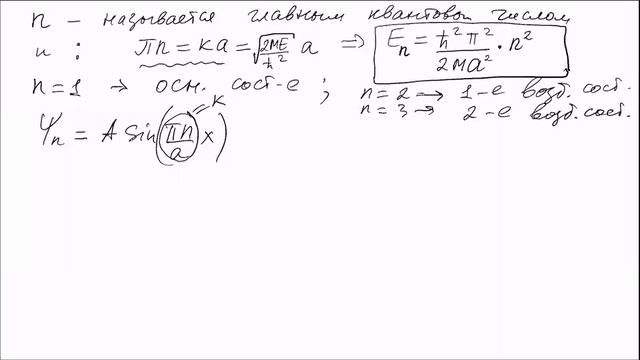 n – называется главным квантовым числом
и : πn = ka = √(2mE/ħ²) a ⇒ Eₙ = ħ²π²/2ma² · n²
n = 1 → осн. сост-е ; n = 2 → 1-е возб. сост.
n = 3 → 2-е возб. сост.
ψₙ = A sin(πn/a x) = k